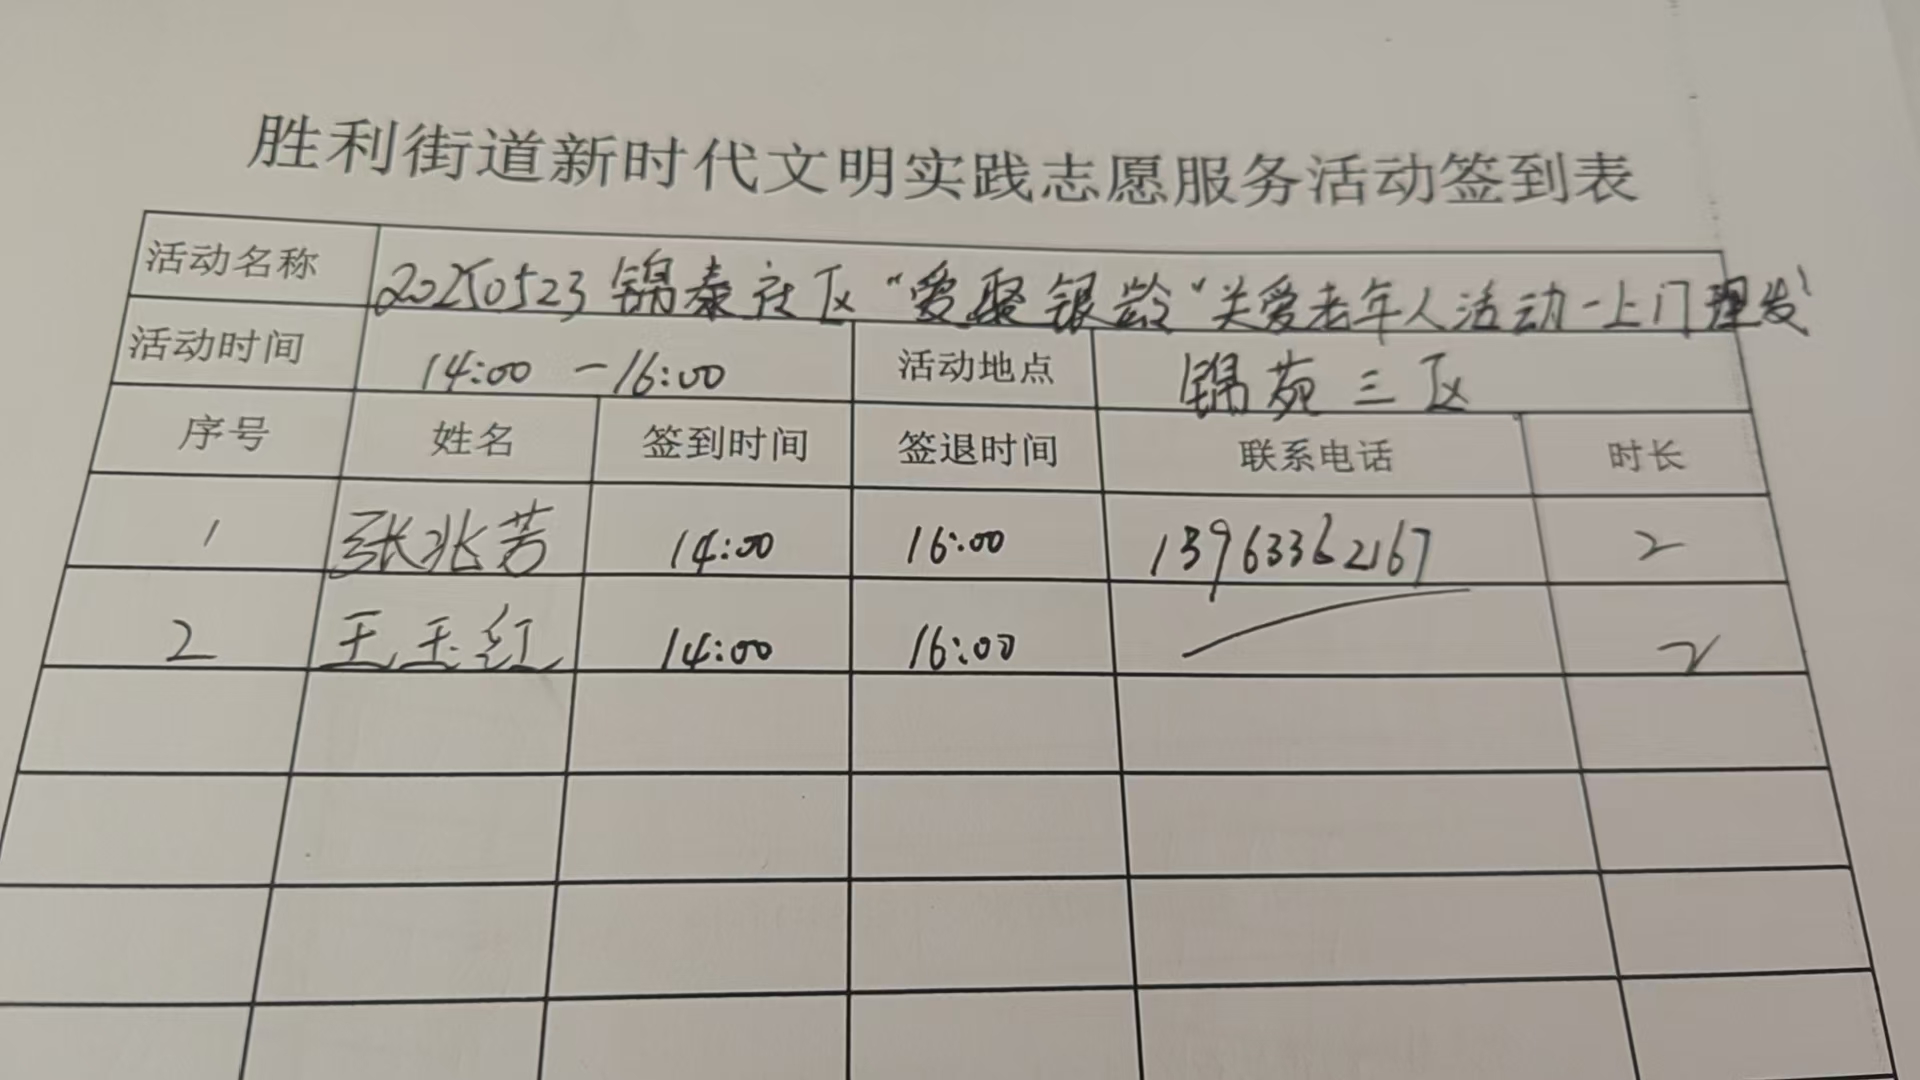 胜利街道新时代文明实践志愿服务活动签到表
活动名称 20250523锦泰社区“爱聚银龄”关爱老年人活动-上门理发
活动时间 14:00 -16:00 活动地点 锦苑三区
序号 姓名 签到时间 签退时间 联系电话 时长
1 张兆芳 14:00 16:00 13963362167 2
2 王玉红 14:00 16:00 2